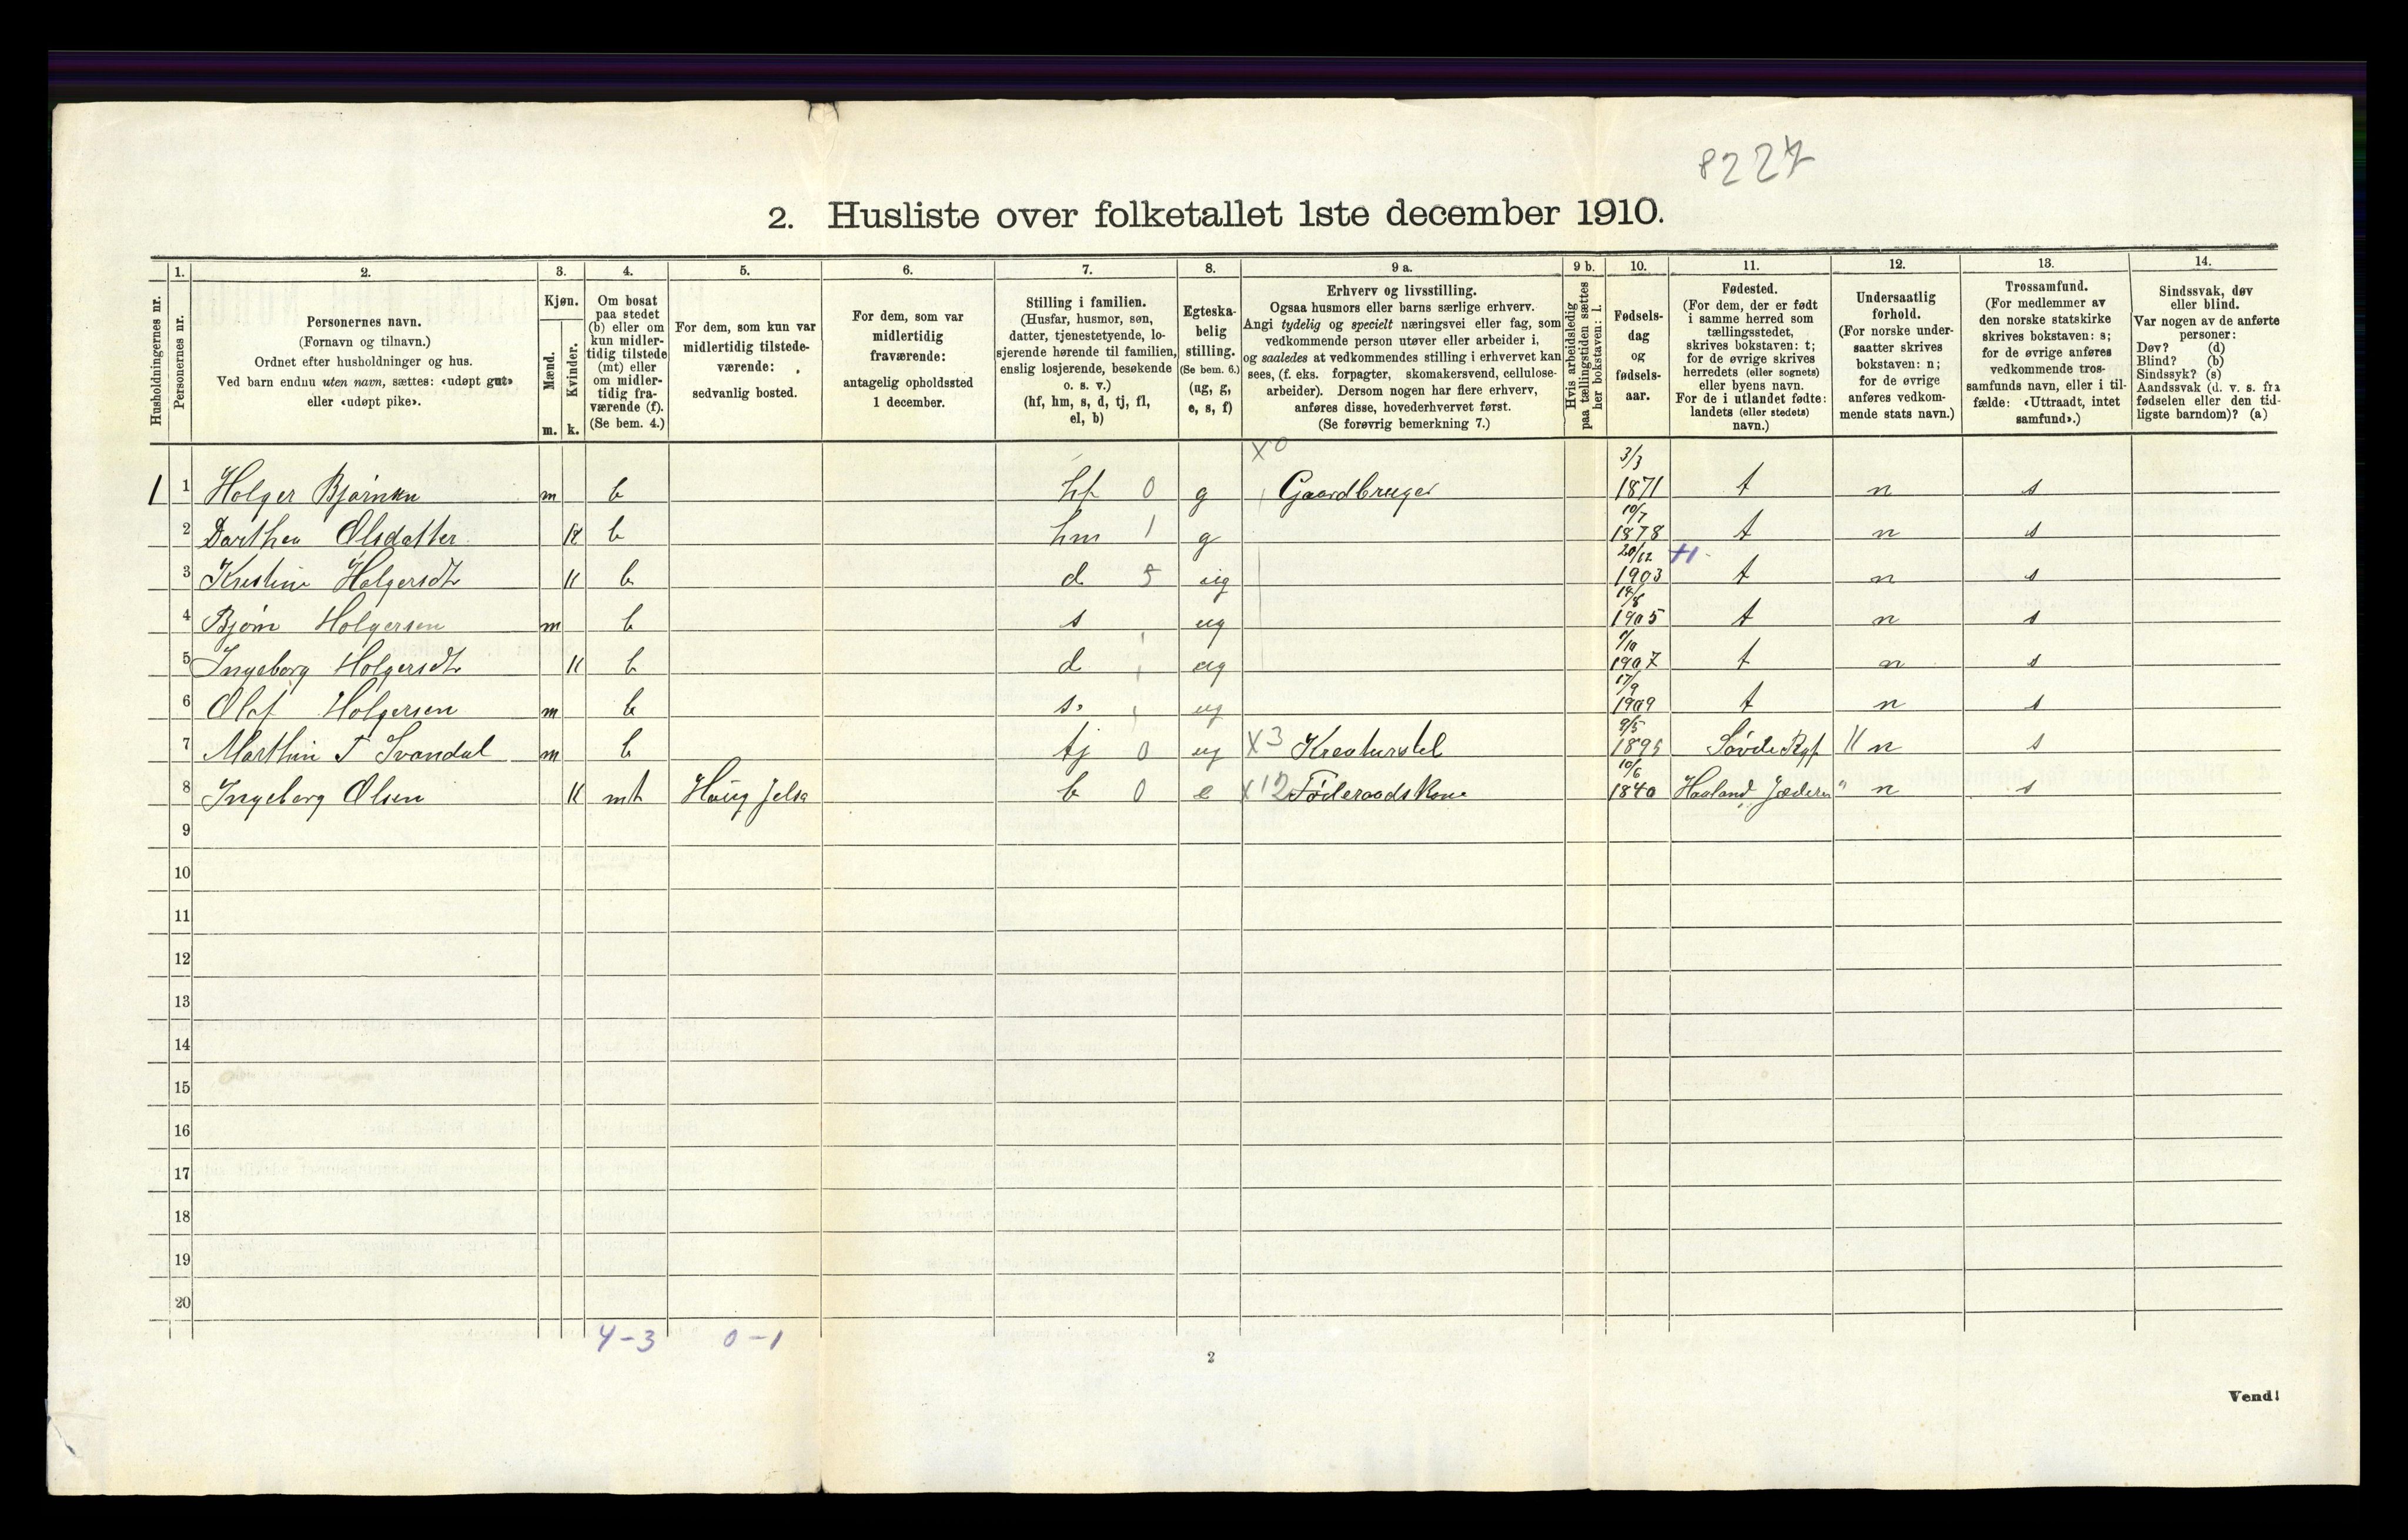 8227
2. Husliste over folketallet 1ste december 1910.
Husholdningernes nr.
1.
Personernes nr.
2.
Personernes navn.
(Fornavn og tilnavn.)
Ordnet efter husholdninger og hus.
Ved barn endnu uten navn, sættes: «udøpt gut»
eller «udøpt pike».
3.
Kjøn.
Mænd.
Kvinder.
m. k.
4.
Om bosat
paa stedet
(b) eller om
kun midler-
tidig tilstede
(mt) eller
om midler-
tidig fra-
værende (f).
(Se bem. 4.)
5.
For dem, som kun var
midlertidig tilstede-
værende:
sedvanlig bosted.
6.
For dem, som var
midlertidig
fraværende:
antagelig opholdssted
1 december.
7.
Stilling i familien.
(Husfar, husmor, søn,
datter, tjenestetyende, lo-
sjerende hørende til familien,
enslig losjerende, besøkende
o. s. v.)
(hf, hm, s, d, tj, fl,
el, b)
8.
Egteska-
belig
stilling.
(Se bem. 6.)
(ug, g,
e, s, f)
9 a.
Erhverv og livsstilling.
Ogsaa husmors eller barns særlige erhverv.
Angi tydelig og specielt næringsvei eller fag, som
vedkommende person utøver eller arbeider i,
og saaledes at vedkommendes stilling i erhvervet kan
sees, (f. eks. forpagter, skomakersvend, cellulose-
arbeider). Dersom nogen har flere erhverv,
anføres disse, hovederhvervet først.
(Se forøvrig bemerkning 7.)
9 b.
Hvis arbeidsledig
paa tællingstiden sættes
her bokstaven: l.
10.
Fødsels-
dag
og
fødsels-
aar.
11.
Fødested.
(For dem, der er født
i samme herred som
tællingsstedet,
skrives bokstaven: t;
for de øvrige skrives
herredets (eller sognets)
eller byens navn.
For de i utlandet fødte:
landets (eller stedets)
navn.)
12.
Undersaatlig
forhold.
(For norske under-
saatter skrives
bokstaven: n;
for de øvrige
anføres vedkom-
mende stats navn.)
13.
Trossamfund.
(For medlemmer av
den norske statskirke
skrives bokstaven: s;
for de øvrige anføres
vedkommende tros-
samfunds navn, eller i til-
fælde: «Uttraadt, intet
samfund».)
14.
Sindssvak, døv
eller blind.
Var nogen av de anførte
personer:
Døv? (d)
Blind? (b)
Sindssyk? (s)
Aandssvak (d. v. s. fra
fødselen eller den tid-
ligste barndom)? (a)
1 1 Holger Bjørnsen m b hf 0 g X0 Gaardbruger 3/3 1871 t n s
2 Darthea Olsdatter k b hm 1 g 10/7 1878 t n s
3 Kristine Holgersdtr k b d 5 ug 20/12 1903 t n s
4 Bjørn Holgersen m b s ug 14/8 1905 t n s
5 Ingeborg Holgersdtr k b d ug /10 1907 t n s
6 Olaf Holgersen m b s. ug 17/9 1909 t n s
7 Marthin T Svandal m b tj 0 ug X3 Kreaturstel 9/5 1895 Søvde Ryf n s
8 Ingeborg Olsen k mt Haug Jelsa b 0 e X12 Føderaadskone 10/6 1840 Haaland Jæderen " n s
9
10
11
12
13
14
15
16
17
18
19
20
4-3 0-1
2
Vend!